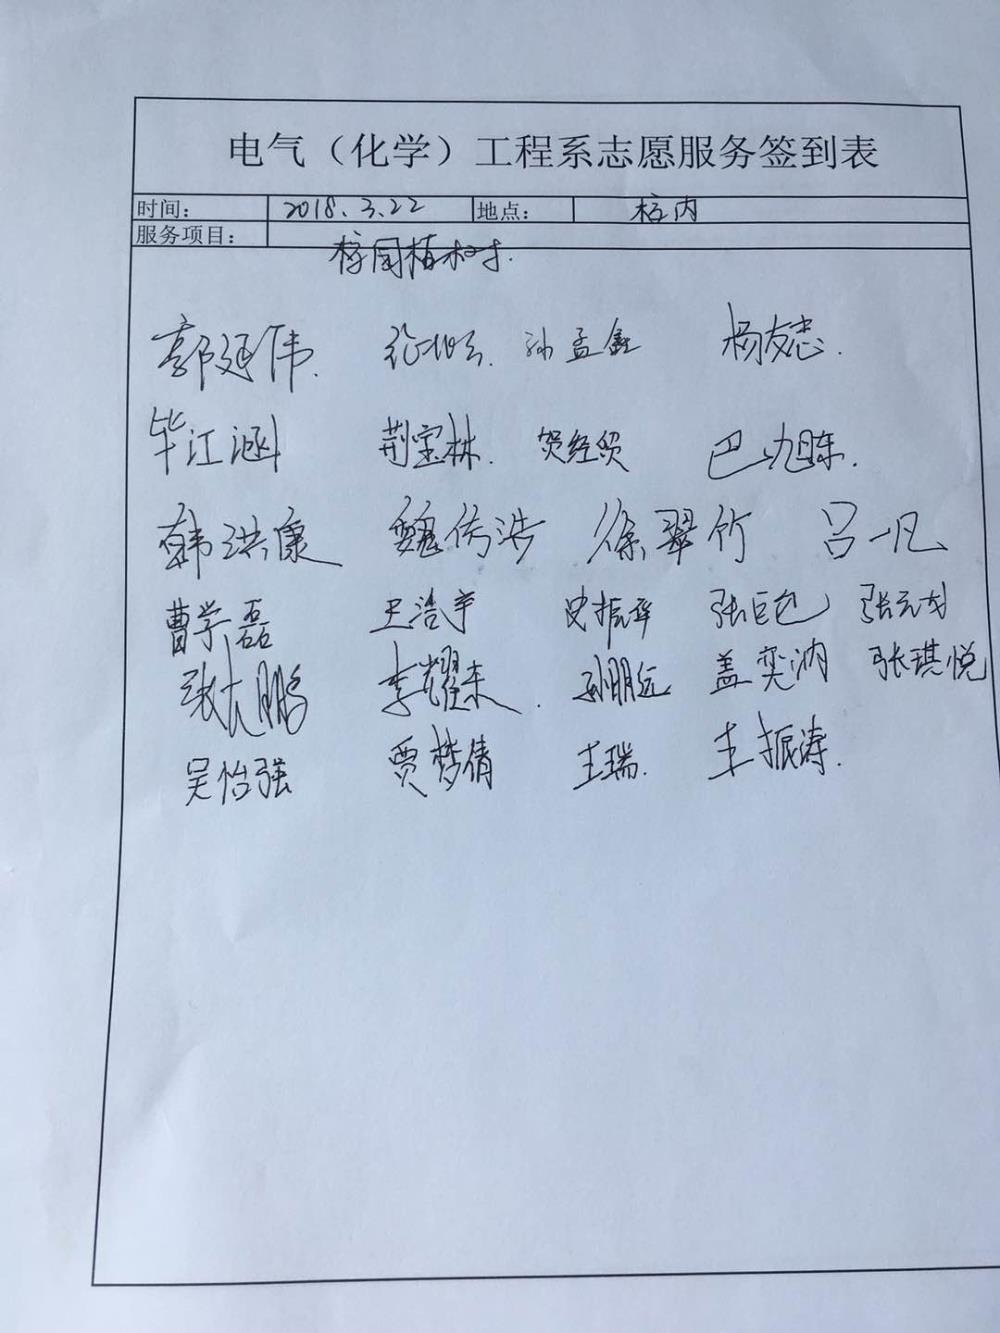 电气（化学）工程系志愿服务签到表
时间： 2018.3.22 地点： 校内
服务项目：
校园植树.
郭延伟. 孙孟鑫 杨友志.
毕江涵 荆宝林. 贺经贸 巴旭东.
韩洪康 魏传浩 徐翠竹 吕一凡
曹学磊 王浩宇 史振华 张巨龙
张大鹏 李耀东. 孙鹏远 盖奕汭 张琪悦
吴怡强 贾梦倩 王瑞. 王振涛.